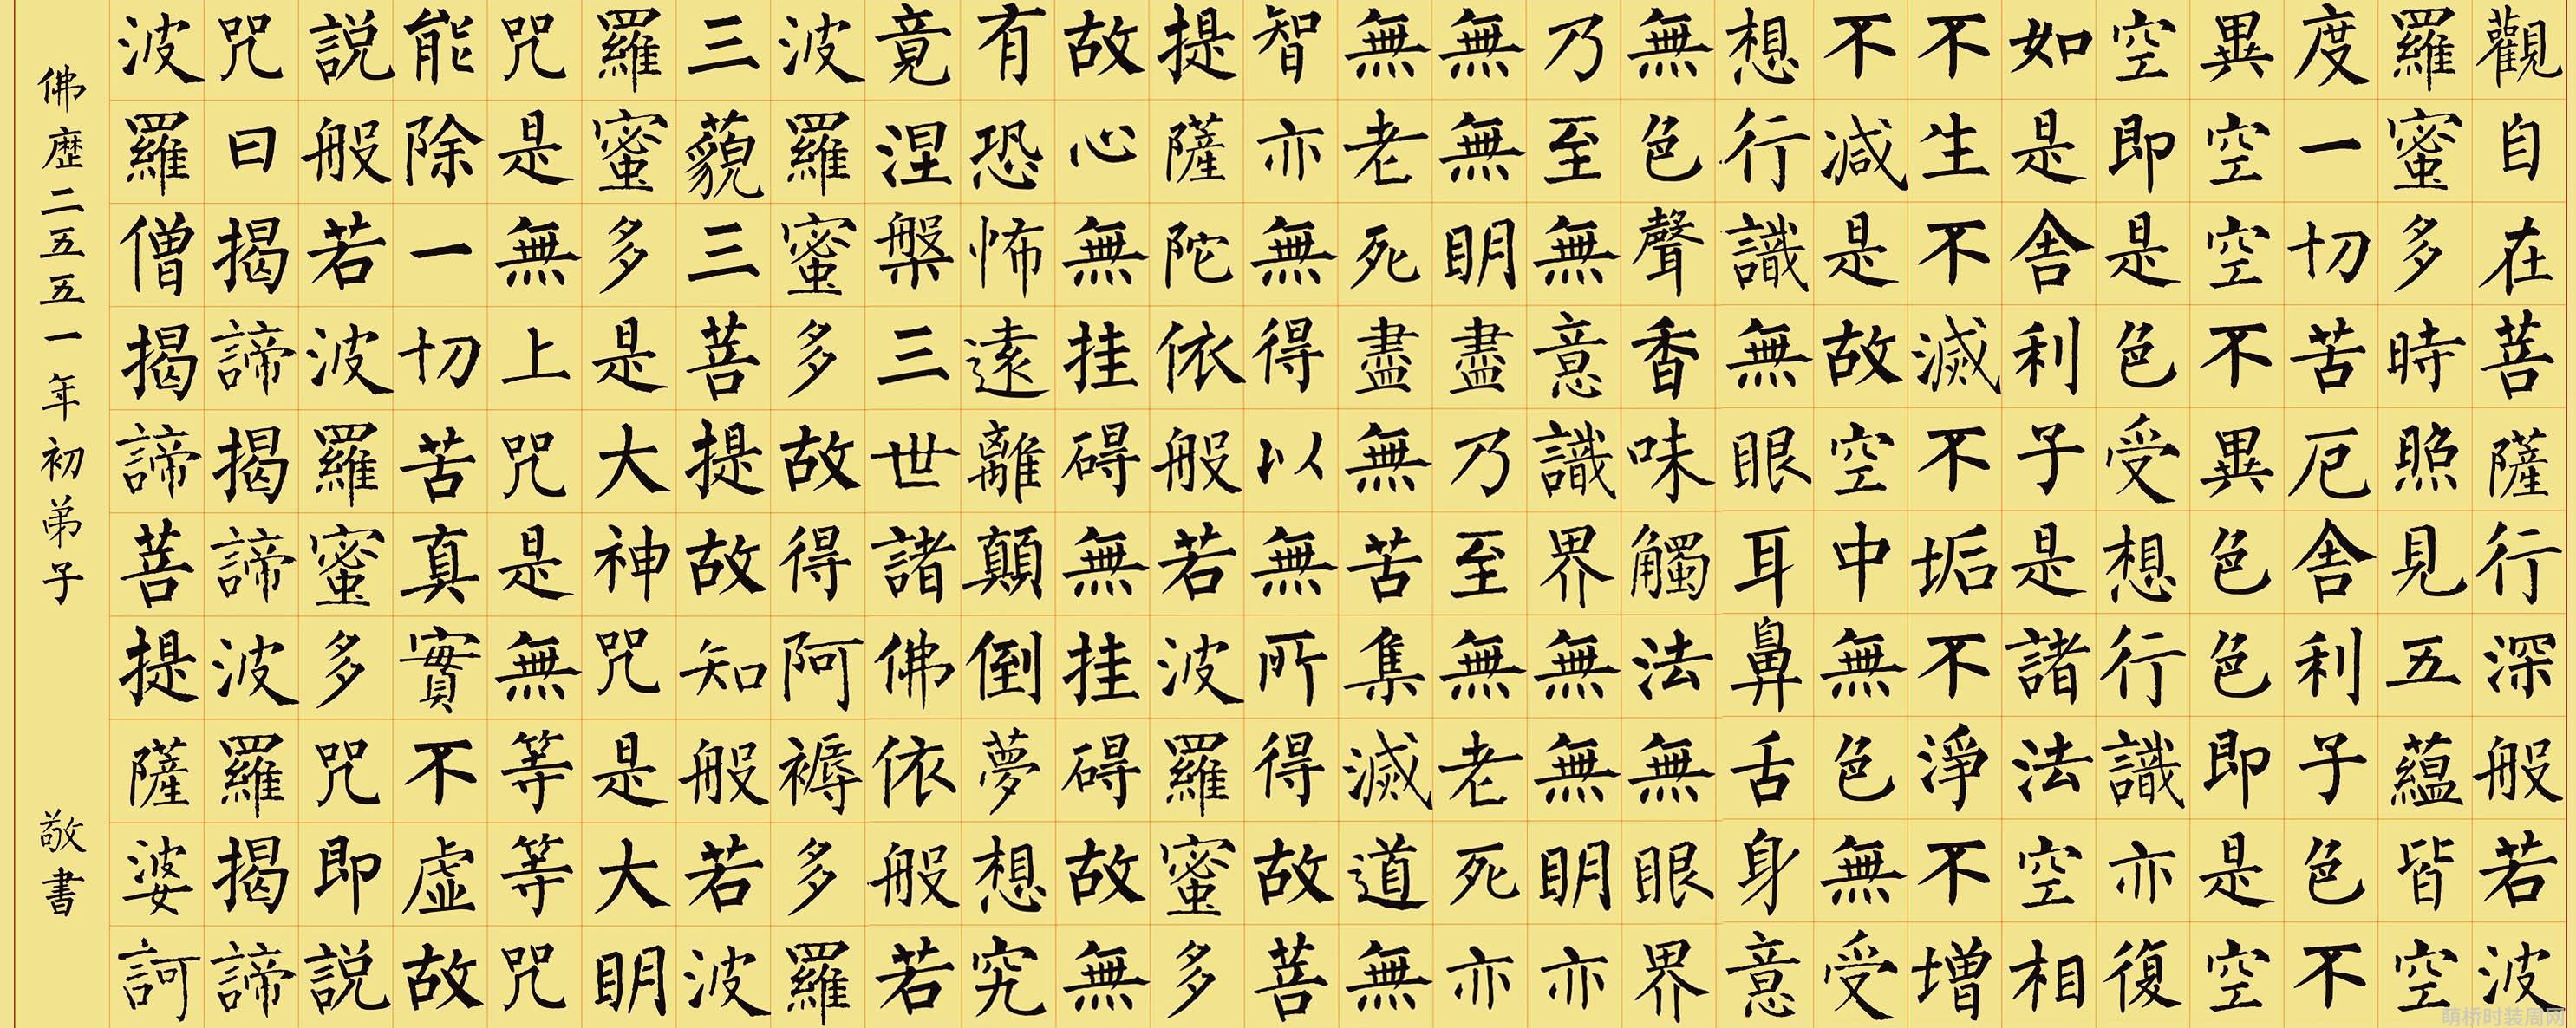 觀自在菩薩行深般若波
羅蜜多時照見五蘊皆空
度一切苦厄舍利子色不
異空空不異色色即是空
空即是色受想行識亦復
如是舍利子是諸法空相
不生不滅不垢不淨不增
不減是故空中無色無受
想行識無眼耳鼻舌身意
無色聲香味觸法無眼界
乃至無意識界無無明亦
無無明盡乃至無老死亦
無老死盡無苦集滅道無
智亦無得以無所得故菩
提薩陀依般若波羅蜜多
故心無挂碍無挂碍故無
有恐怖遠離顛倒夢想究
竟涅槃三世諸佛依般若
波羅蜜多故得阿褥多羅
三藐三菩提故知般若波
羅蜜多是大神咒是大明
咒是無上咒是無等等咒
能除一切苦真實不虛故
説般若波羅蜜多咒即説
咒曰揭諦揭諦波羅揭諦
波羅僧揭諦菩提薩婆訶
佛歷二五五一年初弟子 敬書
萌桥时装周网